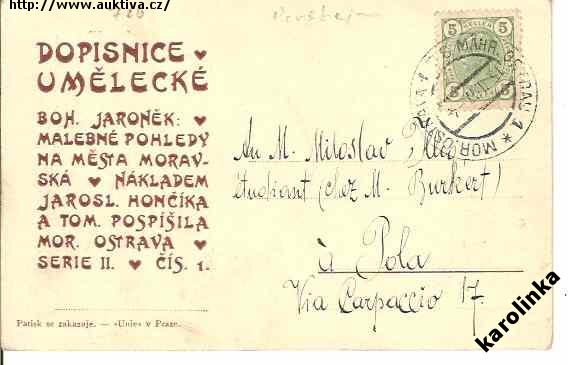 http://www.auktiva.cz/
726
DOPISNICE ♥
UMĚLECKÉ
BOH. JARONĚK:
MALEBNÉ POHLEDY
NA MĚSTA MORAV-
SKÁ ♥ NÁKLADEM
JAROSL. HONČÍKA
A TOM. POSPÍŠILA
MOR. OSTRAVA ♥
SERIE II. ♥ ČÍS. 1.
Patisk se zakazuje. — »Unie« v Praze.
5 5
5 5
MÄHR. OSTRAU 1 * MOR.
Au M. Miroslav
étudiant (chez M. Burkert)
à Pola
Via Carpaccio 17.
karolinka